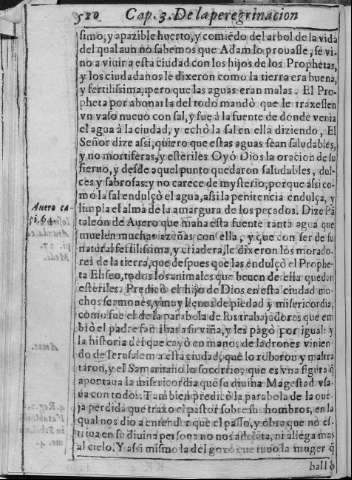 520 Cap. 3. De la peregrinacion
simo, y apazible huerto, y comiẽdo del arbol de la vida
del qual aun no sabemos que Adam lo prouasse, se vi-
no a viuir a esta ciudad con los hijos de los Prophetas,
y los ciudadanos le dixeron como la tierra era buena,
y fertilissima, pero que las aguas eran malas. El Pro-
pheta por abonarla del todo mandò que le traxessen
vn vaso nueuo con sal, y fue à la fuente de donde venia
el agua à la ciudad, y echò la sal en ella diziendo, El
Señor dize assi, quiero que estas aguas sean saludables,
y no mortiferas, y esteriles Oyó Dios la oracion de su
sieruo, y desde aquel punto quedaron saludables, dul-
ces y sabrosas: y no carece de mysterio, porque assi co-
mo la sal endulçó el agua, assi la penitencia endulça, y
limpia el alma de la amargura de los pecados. Dize Pã
taleon de Auero que mana esta fuente tanta agua que
muelen muchas azeñas con ella, y que con ser de su
natural fertilissima, y criadera, le dixeron los morado-
res de la tierra, que despues que las endulçò el Prophe-
ta Eliseo, todos los animales que beuen de ella quedan
esteriles. Predicò el hijo de Dios en esta ciudad mu-
chos sermones, y muy llenos de piedad y misericordia,
como fue el de la parabola de los trabajadores que em
biò el padre familias a su viña, y les pagò por igual: y
la historia del que cayò en manos de ladrones vinien-
do de Ierusalem a esta ciudad, que lo robaron y maltra
taron, y el Samaritano lo socorrio; que es viua figura q̃
aportaua la misericordia que su diuina Magestad vsa-
ua con todos. Tambien predicò la parabola de la oue-
ja perdida que traxo el pastor sobre sus hombros, en la
qual nos dio a entender que el passo, y obra que no es-
triua en su diuina persona no nos adelanta, ni allega mas
al cielo. Y assi mismo la del gozo que tuuo la muger q̃
hallò
Auero ca-
pi. 64.